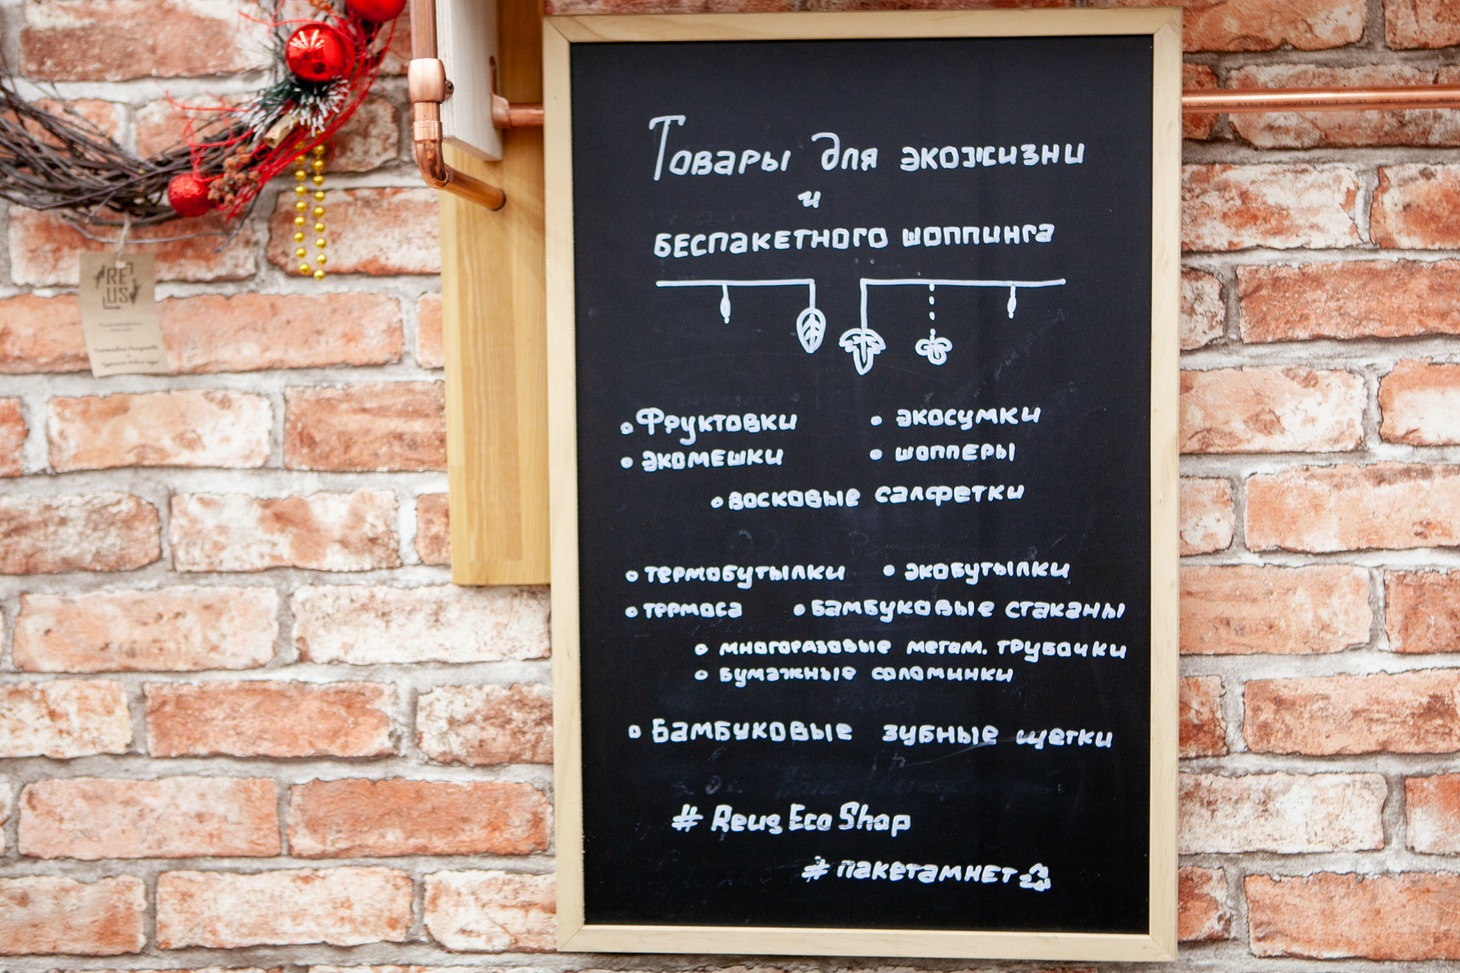 Товары для экожизни
и
беспакетного шоппинга
• Фруктовки • экосумки
• экомешки • шопперы
• восковые салфетки
• термобутылки • экобутылки
• термоса • бамбуковые стаканы
• многоразовые метал. трубочки
• бумажные соломинки
• Бамбуковые зубные щетки
# Reus Eco Shop
# пакетамнет
RE
US